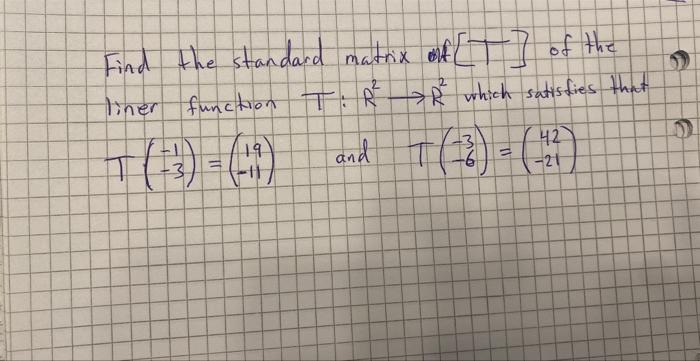 Find the standard matrix [T] of the
liner function T: R² → R² which satisfies that
T(-1 -3) = (19 -11) and T(-3 -6) = (42 -21)